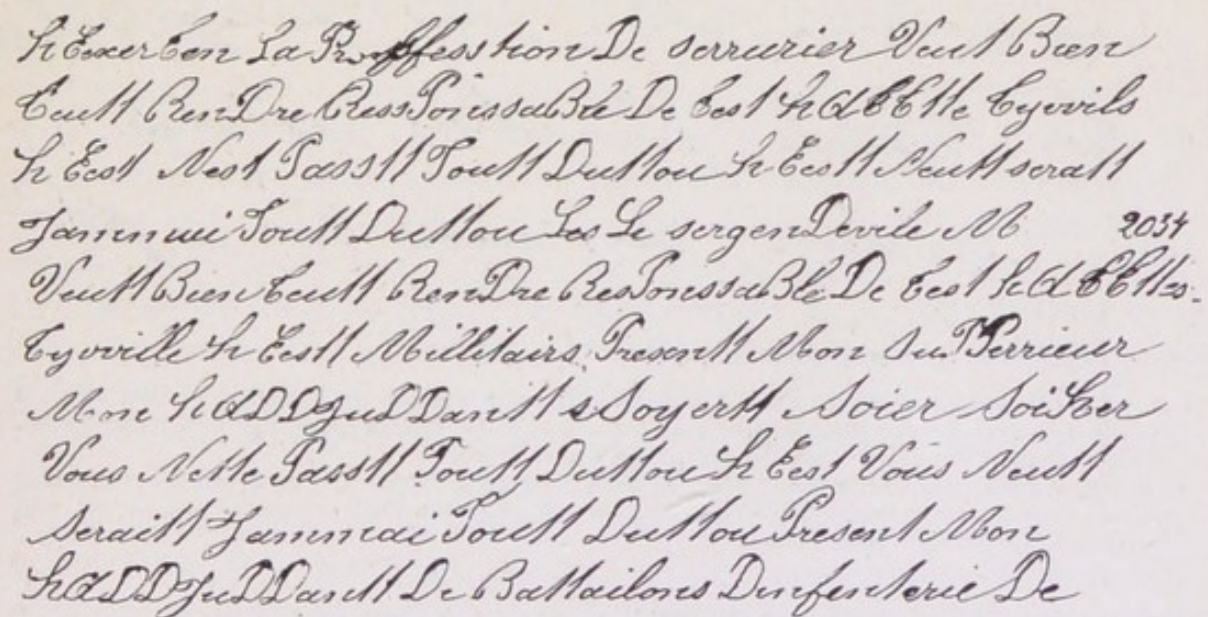 h Eexer Cen La Proffesstion De serrurier Veut Bien
Ceutt RenDre RessPonssaBle De Cest hAEEtte Cyovils
h Eest Nest Passtt Toutt Duttou h Eestt Neutt seratt
Jammui Toutt Duttou Les Le sergenDevile M 2034
Veutt Bien Ceutt RenDre ResPonssaBle De Cest hAEEttes
Cyoville h Eestt Millitairs Presentt Mon SuPPerrieur
Mon hADDJuDDantt sSoyertt Soier Soiher
Vous Nette Passtt Toutt Duttou h Eest Vous Neutt
Seraitt Jammai Toutt Duttou Present Mon
hADDJuDDantt De Battailons Dinfenterie De